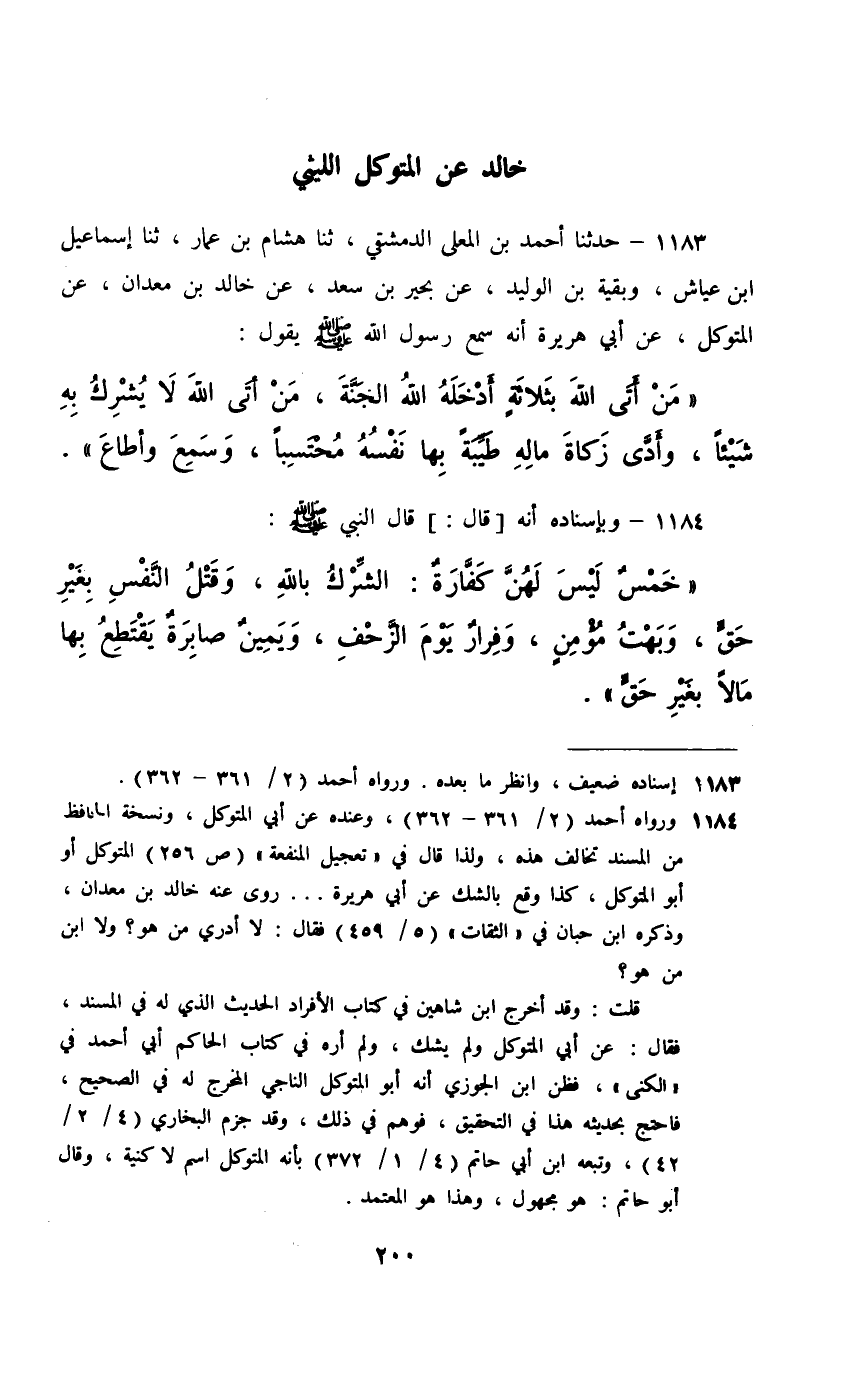 خالد عن المتوكل الليثي
١١٨٣ – حدثنا أحمد بن المعلى الدمشقي ، ثنا هشام بن عمار ، ثنا إسماعيل
ابن عياش ، وبقية بن الوليد ، عن بحير بن سعد ، عن خالد بن معدان ، عن
المتوكل ، عن أبي هريرة أنه سمع رسول الله ﷺ يقول :
« مَنْ أَتَى اللهَ بَثَلاثَةٍ أَدْخَلَهُ اللهُ الجَنَّةَ ، مَنْ أتَى اللهَ لَا يُشْرِكُ بِهِ
شَيْئاً ، وأَدَّى زَكاةَ مالِهِ طَيِّبَةً بِها نَفْسُهُ مُحْتَسِباً ، وَسَمِعَ وأطاعَ » .
١١٨٤ – وبإسناده أنه [ قال : ] قال النبي ﷺ :
« خَمْسٌ لَيْسَ لَهُنَّ كَفَّارَةٌ : الشِّرْكُ باللهِ ، وَقَتْلُ النَّفْسِ بِغَيْرِ
حَقٍّ ، وَبَهْتُ مُؤْمِنٍ ، وَفِرارٌ يَوْمَ الزَّحْفِ ، وَيَمِينٌ صابِرَةٌ يَقْتَطِعُ بِها
مَالاً بغَيْرِ حَقٍّ » .
١١٨٣ إسناده ضعيف ، وانظر ما بعده . ورواه أحمد (٢ / ٣٦١ – ٣٦٢) .
١١٨٤ ورواه أحمد (٢ / ٣٦١ – ٣٦٢) ، وعنده عن أبي المتوكل ، ونسخة الحافظ
من المسند تخالف هذه ، ولذا قال في « تعجيل المنفعة » (ص ٢٥٦) المتوكل أو
أبو المتوكل ، كذا وقع بالشك عن أبي هريرة ... روى عنه خالد بن معدان ،
وذكره ابن حبان في « الثقات » (٥ / ٤٥٩) فقال : لا أدري من هو؟ ولا ابن
من هو؟
قلت : وقد أخرج ابن شاهين في كتاب الأفراد الحديث الذي له في المسند ،
فقال : عن أبي المتوكل ولم يشك ، ولم أره في كتاب الحاكم أبي أحمد في
« الكنى » ، فظن ابن الجوزي أنه أبو المتوكل الناجي المخرج له في الصحيح ،
فاحتج بحديثه هذا في التحقيق ، فوهم في ذلك ، وقد جزم البخاري (٤ / ٢ /
٤٢) ، وتبعه ابن أبي حاتم (٤ / ١ / ٣٧٢) بأنه المتوكل اسم لا كنية ، وقال
أبو حاتم : هو مجهول ، وهذا هو المعتمد .
٢٠٠